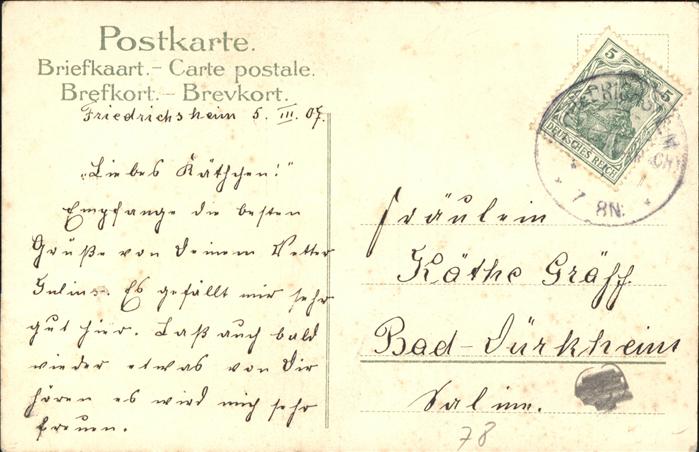 Postkarte.
Briefkaart. – Carte postale.
Brefkort. – Brevkort.
Friedrichsheim 5. III. 07.
„Liebes Käthchen!"
Empfange die besten
Grüße von deinem Vetter
Julius. Es gefällt mir sehr
gut hier. Laß auch bald
wieder etwas von Dir
hören es wird mich sehr
freuen.
5 5
DEUTSCHES REICH
7 8N.
Fräulein
Käthe Gräff.
Bad-Dürkheim
Saline.
78